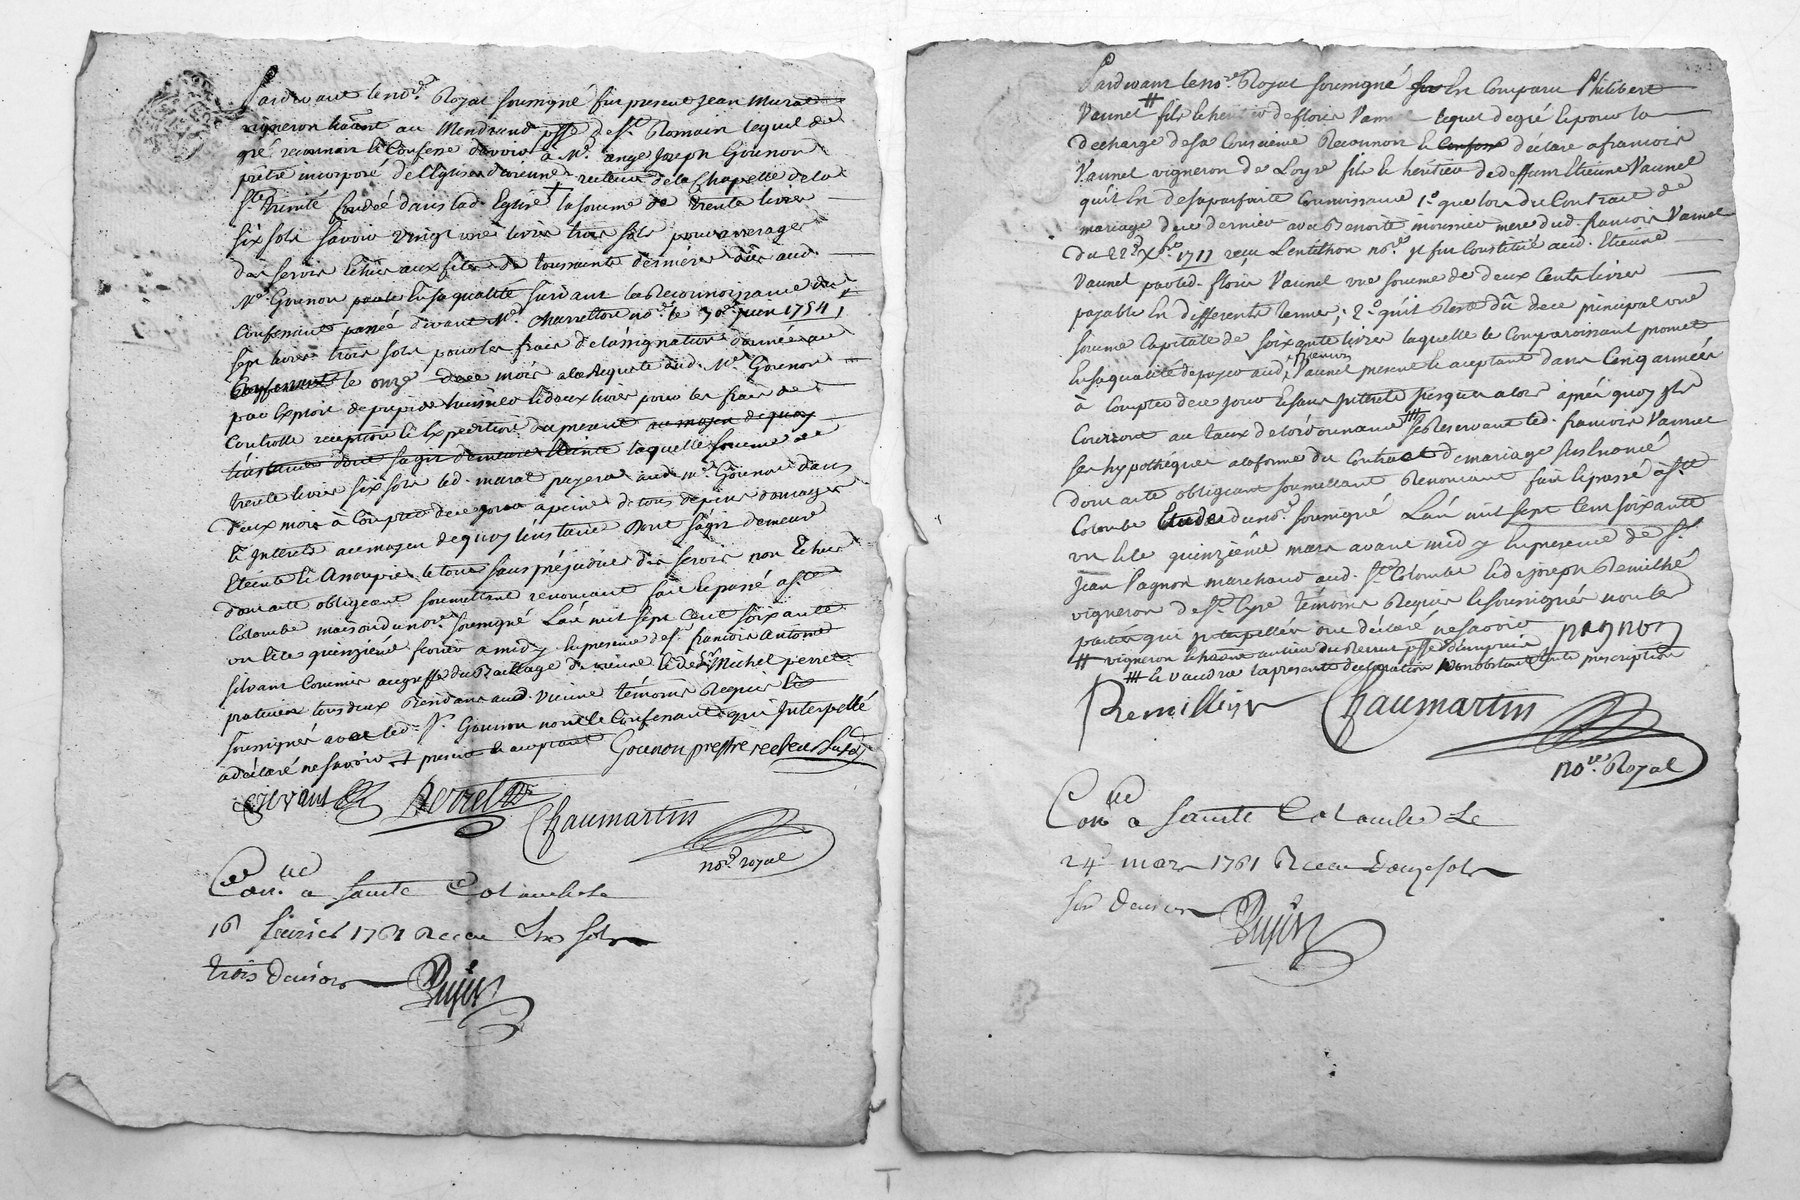 Pardevant le no.re Royal soussigné fut present jean Murat
vigneron hãnt au Mendrand psse de St. Romain lequel de
gré reconnoit et Confesse devoir à Mr. ange joseph Gounon
prêtre incorporé de l'Eglise de vienne recteur de la Chapelle de la
ste. trinité fondée dans lad. Eglise † la somme de trente livres
six sols savoir vingt une livres trois sols pour arrerages
des servis Echus aux fêtes de toussaints dernieres dûs aud.
Mr. Gounon en sa qualité suivant la Reconnoissance du
Confessant passée devant Me. Charreton no.re le 30e. juin 1754,
sept livres trois sols pour les frais de l'assignation donnée au
Confessant le onze de ce mois a la Requete dud. Mr. Gounon
par Exploit de huissier et deux livres pour les frais de
Controlle reception et Expedition du present au moyen de quoy
l'instance dont s'agit demeure Eteinte laquelle somme de
trente livres six sols led. murat payera aud. mr. Gounon dans
deux mois à Compter de ce jour a peine de tous depens domages
et Interets au moyen de quoy l'instance dont s'agit demeure
Eteinte et Assoupie le tout sans préjudice des servis non Echus
dont acte obligeant soumettant renonçant fait et passé a Ste.
Colombe maison du no.re soussigné L'an mil sept Cent soixante
un et le quinzième fevrier a midy En presence de s. françois Antoine
silvant Commis au greffe du Baillage de vienne et de Sr. Michel perret
praticien tous deux Residans aud. vienne témoins Requis et
soussignés avec led. sr. Gounon non le Confessant qui Interpellé
a déclaré ne savoir † present et acceptant Gounon prestre recteur susd.
silvant Perret
Chaumartin
no.re royal
Con.lé a Sainte Colombe le
16 fevrier 1761 Receu six sols
trois deniers
Pardevant le no.re Royal soussigné En Comparu Philibert
Vannel # fils et heritier de floris Vannel lequel de gré et pour la
decharge de sa Consience Reconnoit et Confesse déclare a françois
Vannel vigneron de Loyre fils et héritier de deffunt Etienne Vannel
qu'il En de sa parfaite Connoissance 1o. que lors du Contrat de
mariage de ce dernier avec Benoite mousnier mere dud. francois Vannel
du 22e. Xbre. 1711 reçu Lentilhon no.re il fut Constitué aud. Etienne
Vannel par led. floris Vannel une somme de deux Cents livres
payable En differents termes; 2o. qu'il Reste dû de ce principal une
somme Capitale de soixante livres laquelle le Comparoissant promet
En sa qualité de payer aud. francois Vannel present et acceptant dans Cinq années
à Compter de ce jour et sans Interets jusques alors après quoy ils
Courront au taux de l'ordonnance ### se Reservant led. francois Vannel
ses hypothéques a la forme du Contract de mariage susEnoncé
dont acte obligeant soumettant Renoncant fait et passé a Ste.
Colombe Etude du no.re soussigné L'an mil sept Cent soixante
un et le quinzième mars avant midy En presence de sr.
Jean Pagnon marchand aud. Ste. Colombe et de joseph Remillié
vigneron de St. Cyre témoins Requis et soussignés non les
parties qui Interpellées ont déclaré ne savoir pagnon
### et vaudra la presente declaration
Remillier Chaumartin
no.re Royal
Con.lé a Sainte Colombe Le
24e mars 1761 Receu douze sols
six deniers